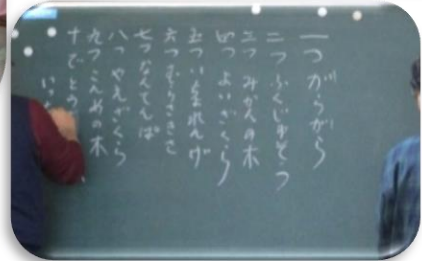 一つ がらがら
二つ ふくじゅそう
三つ みかんの木
四つ よいざくら
五ついくまれんげ
六つ むらさきさ
七つなんてんぱ
八つ やえざくら
九つこんめの木
十で とう
いっ